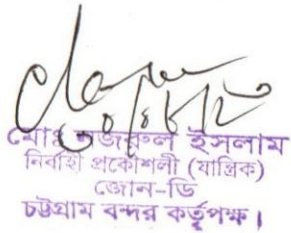 মোঃ নজরুল ইসলাম
নির্বাহী প্রকৌশলী (যান্ত্রিক)
জোন-ডি
চট্টগ্রাম বন্দর কর্তৃপক্ষ।